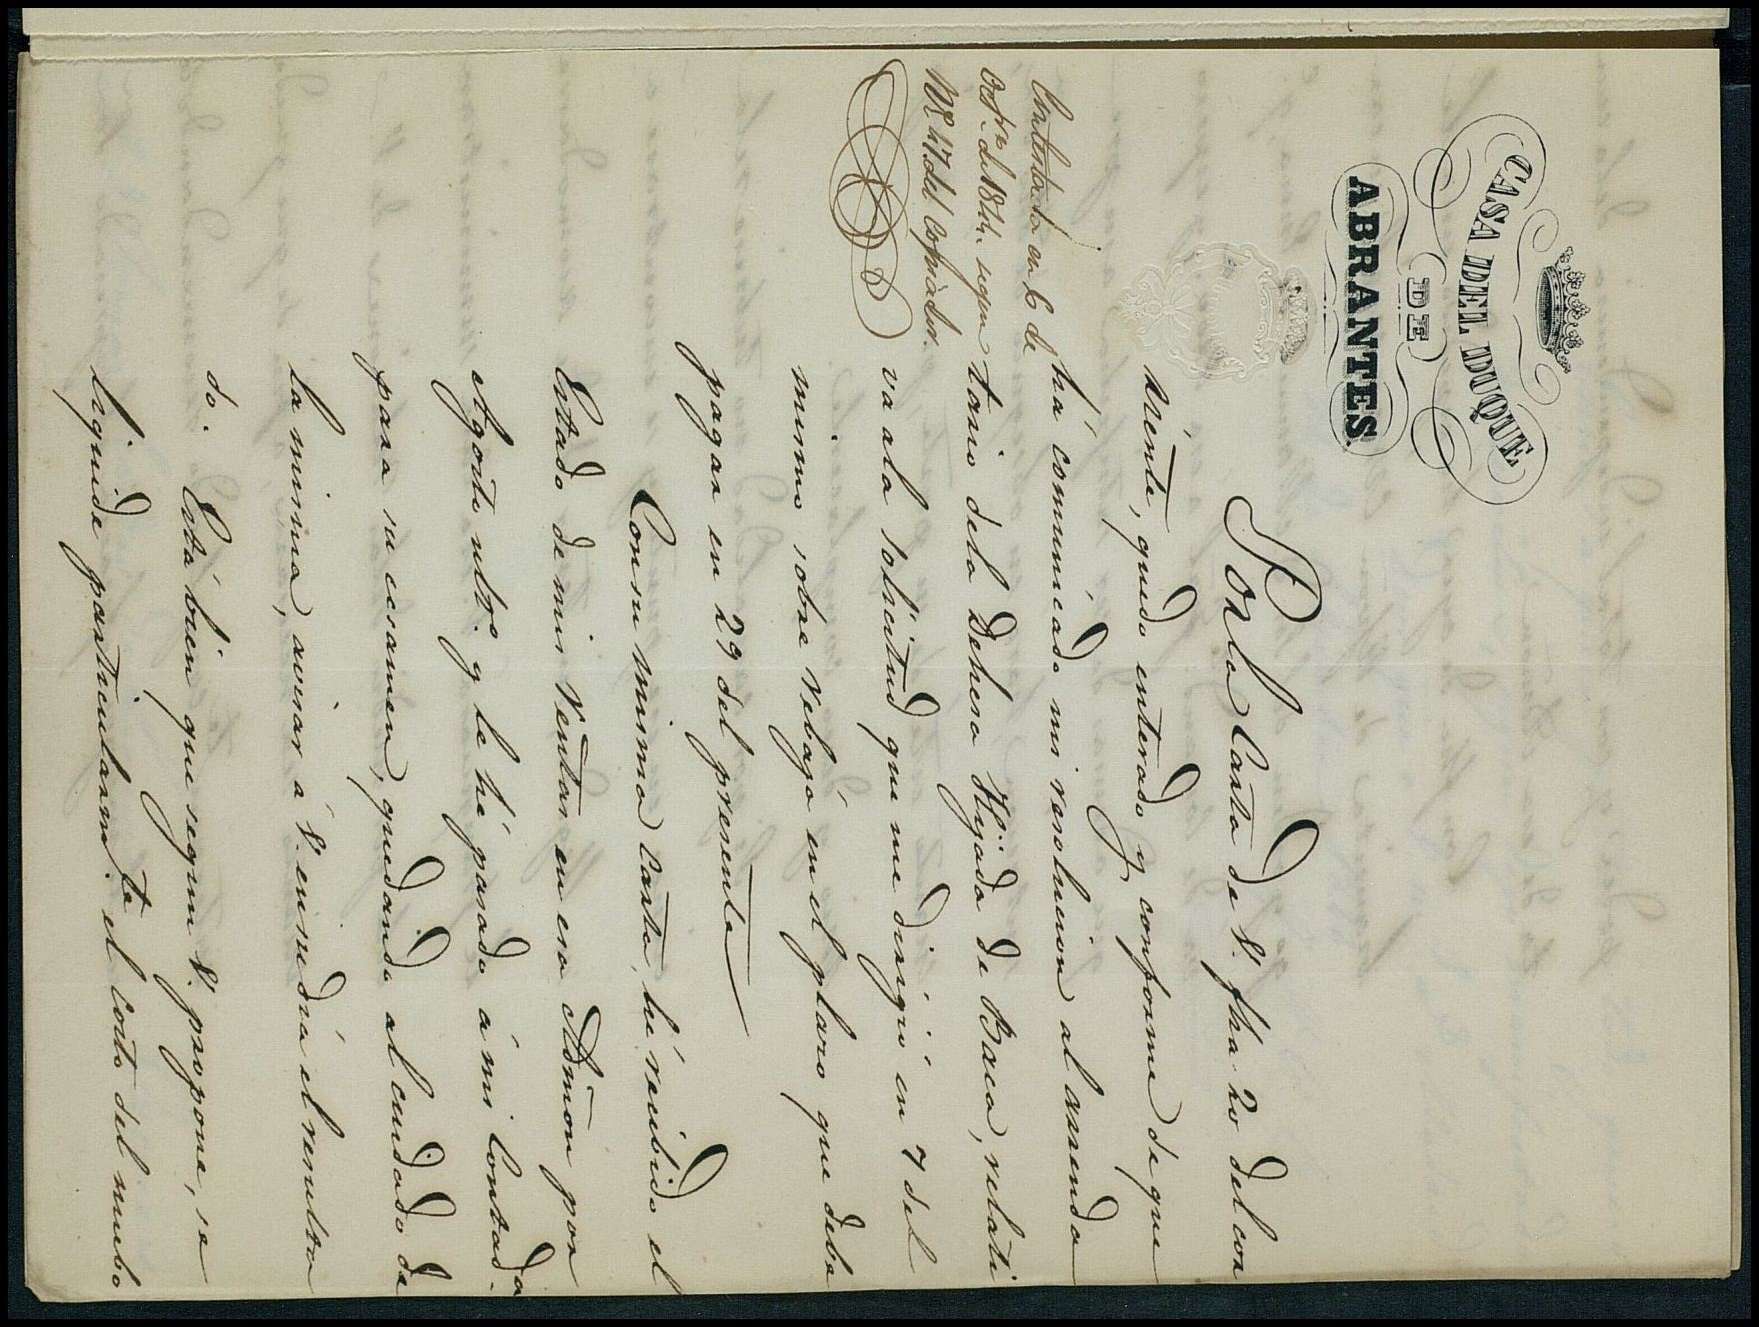 CASA DEL DUQUE
DE
ABRANTES.
Contestada en 6 de
Octre. de 1844. segun
Nº 47 del Copiador.
Por la Carta de V. fha. 20 del cor
riente, quedo enterado y conforme de que
há comunicado mi resolucion al arrenda
tario dela Dehesa Hijada de Baca, relati
va ala solicitud que me dirigió en 7 del
mismo sobre rebaja en el plazo que debe
pagar en 29 del presente
Con su misma Carta, hé recibido el
Estado de mis rentas en esa Admon por
Agosto ulto. y le hé pasado á mi Contadª.
para su ecsamen, quedando al cuidado de
la misma, avisar á V. en su dia el resulta
do.
Está bien que segun V. propone, se
liquide particularmte. el costo del nuebo